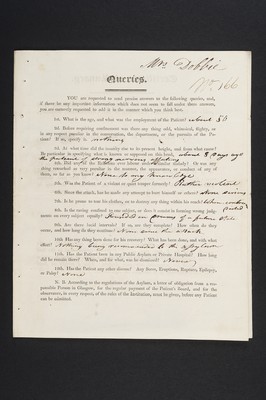 Mrs Dobbie
No. 166
Queries.
YOU are requested to send precise answers to the following queries, and,
if there be any important information which does not seem to fall under these answers,
you are earnestly requested to add it in the manner which you think best.
1st. What is the age, and what was the employment of the Patient? about 50
2d. Before requiring confinement was there any thing odd, whimsical, flighty, or
in any respect peculiar in the conversation, the department, or the pursuits of the Pa-
tient? If so, specify it. nothing
3d. At what time did the malady rise to its present height, and from what cause?
Be particular in specifying what is known or supposed on this head. about 8 days ago
the patient of strong nervous
4th. Did any of the Relations ever labour under a similar malady? Or was any
thing remarked as very peculiar in the manner, the appearance, or conduct of any of
them so far as you know? None to my knowledge
5th. Was the Patient of a violent or quiet temper formerly? Rather violent
6th. Since the attack, has he made any attempt to hurt himself or others?
7th. Is he prone to tear his clothes, or to destroy any thing within his reach? When
8th. Is the raving confined to one subject, or does it consist in forming wrong judg-
ments on every subject equally?
9th. Are there lucid intervals? If so are they complete? How often do they
occur, and how long do they continue? None since the attack
10th. Has any thing been done for his recovery? What has been done, and with what
effect? Nothing
11th. Has the Patient been in any Public Asylum or Private Hospital? How long
did he remain there? When, and for what, was he dismissed? Never
12th. Has the Patient any other disease? Any Sores, Eruptions, Rupture, Epilepsy,
or Palsy? None
N. B. According to the regulations of the Asylum, a letter of obligation from a res-
ponsible Person in Glasgow, for the regular payment of the Patient's Board, and for the
observance, in every respect, of the rules of the Institution, must be given, before any Patient
can be admitted.